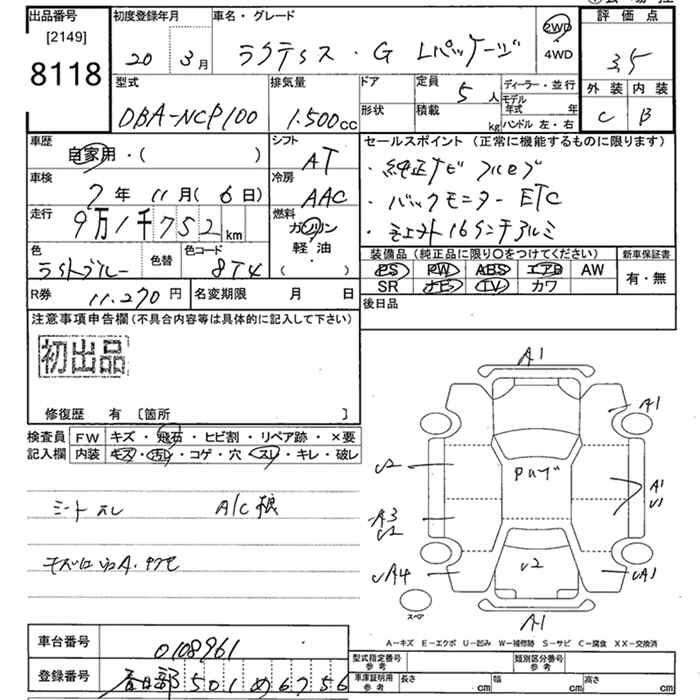 出品番号
[2149]
8118
初度登録年月
20 3月
車名・グレード
ラクティス・G Lパッケージ
2WD
4WD
評価点
3.5
外装 内装
C B
型式
DBA-NCP100
排気量
1.500cc
ドア
形状
定員
5人
積載
kg
ディーラー・並行
モデル年式 年
ハンドル 左・右
車歴
自家用・( )
車検
7年11月(6日)
走行
9万1千752km
色
ライトブルー
色替
色コード
8T4
シフト
AT
冷房
AAC
燃料
ガソリン
軽・油
( )
R券 11.270円
名変期限 月 日
セールスポイント(正常に機能するものに限ります)
・純正ナビ フルセグ
・バックモニター ETC
・社外16インチアルミ
装備品(純正品に限り○をつけてください)
新車保証書
PS PW ABS エアB AW
SR ナビ TV カワ
有・無
後日品
注意事項申告欄(不具合内容等は具体的に記入して下さい)
初出品
修復歴 有 [箇所 ]
検査員
記入欄
FW キズ・飛石・ヒビ割・リペア跡・×要
内装 キズ・汚レ・コゲ・穴・スレ・キレ・破レ
シートスレ A/C
A1
A1
U2
Pガラ
A1
U1
A3
U2
UA4
U2
UA1
A1
スペア
A-キズ E-エクボ U-凹み W-補修跡 S-サビ C-腐食 XX-交換済
車台番号
0108961
登録番号
春日部501め6756
型式指定番号
参考
類別区分番号
参考
車庫証明用
参考
長さ cm
幅 cm
高さ cm